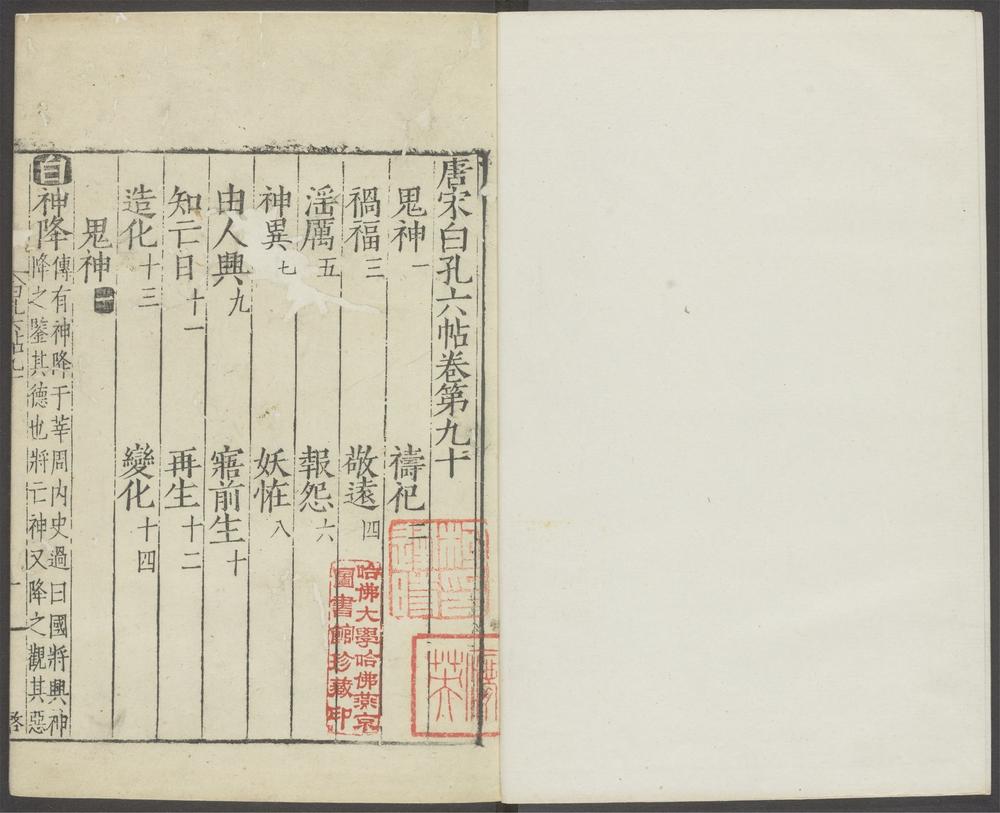 唐宋白孔六帖卷第九十
鬼神一 禱祀二
禍福三 敬遠四
淫厲五 報怨六
神異七 妖恠八
由人興九 寤前生十
知亡日十一 再生十二
造化十三 變化十四
鬼神一
白 神降 傳有神降于莘周内史過曰國將興神
降之鑒其德也將亡神又降之觀其惡
哈佛大學哈佛燕京
圖書館珍藏印